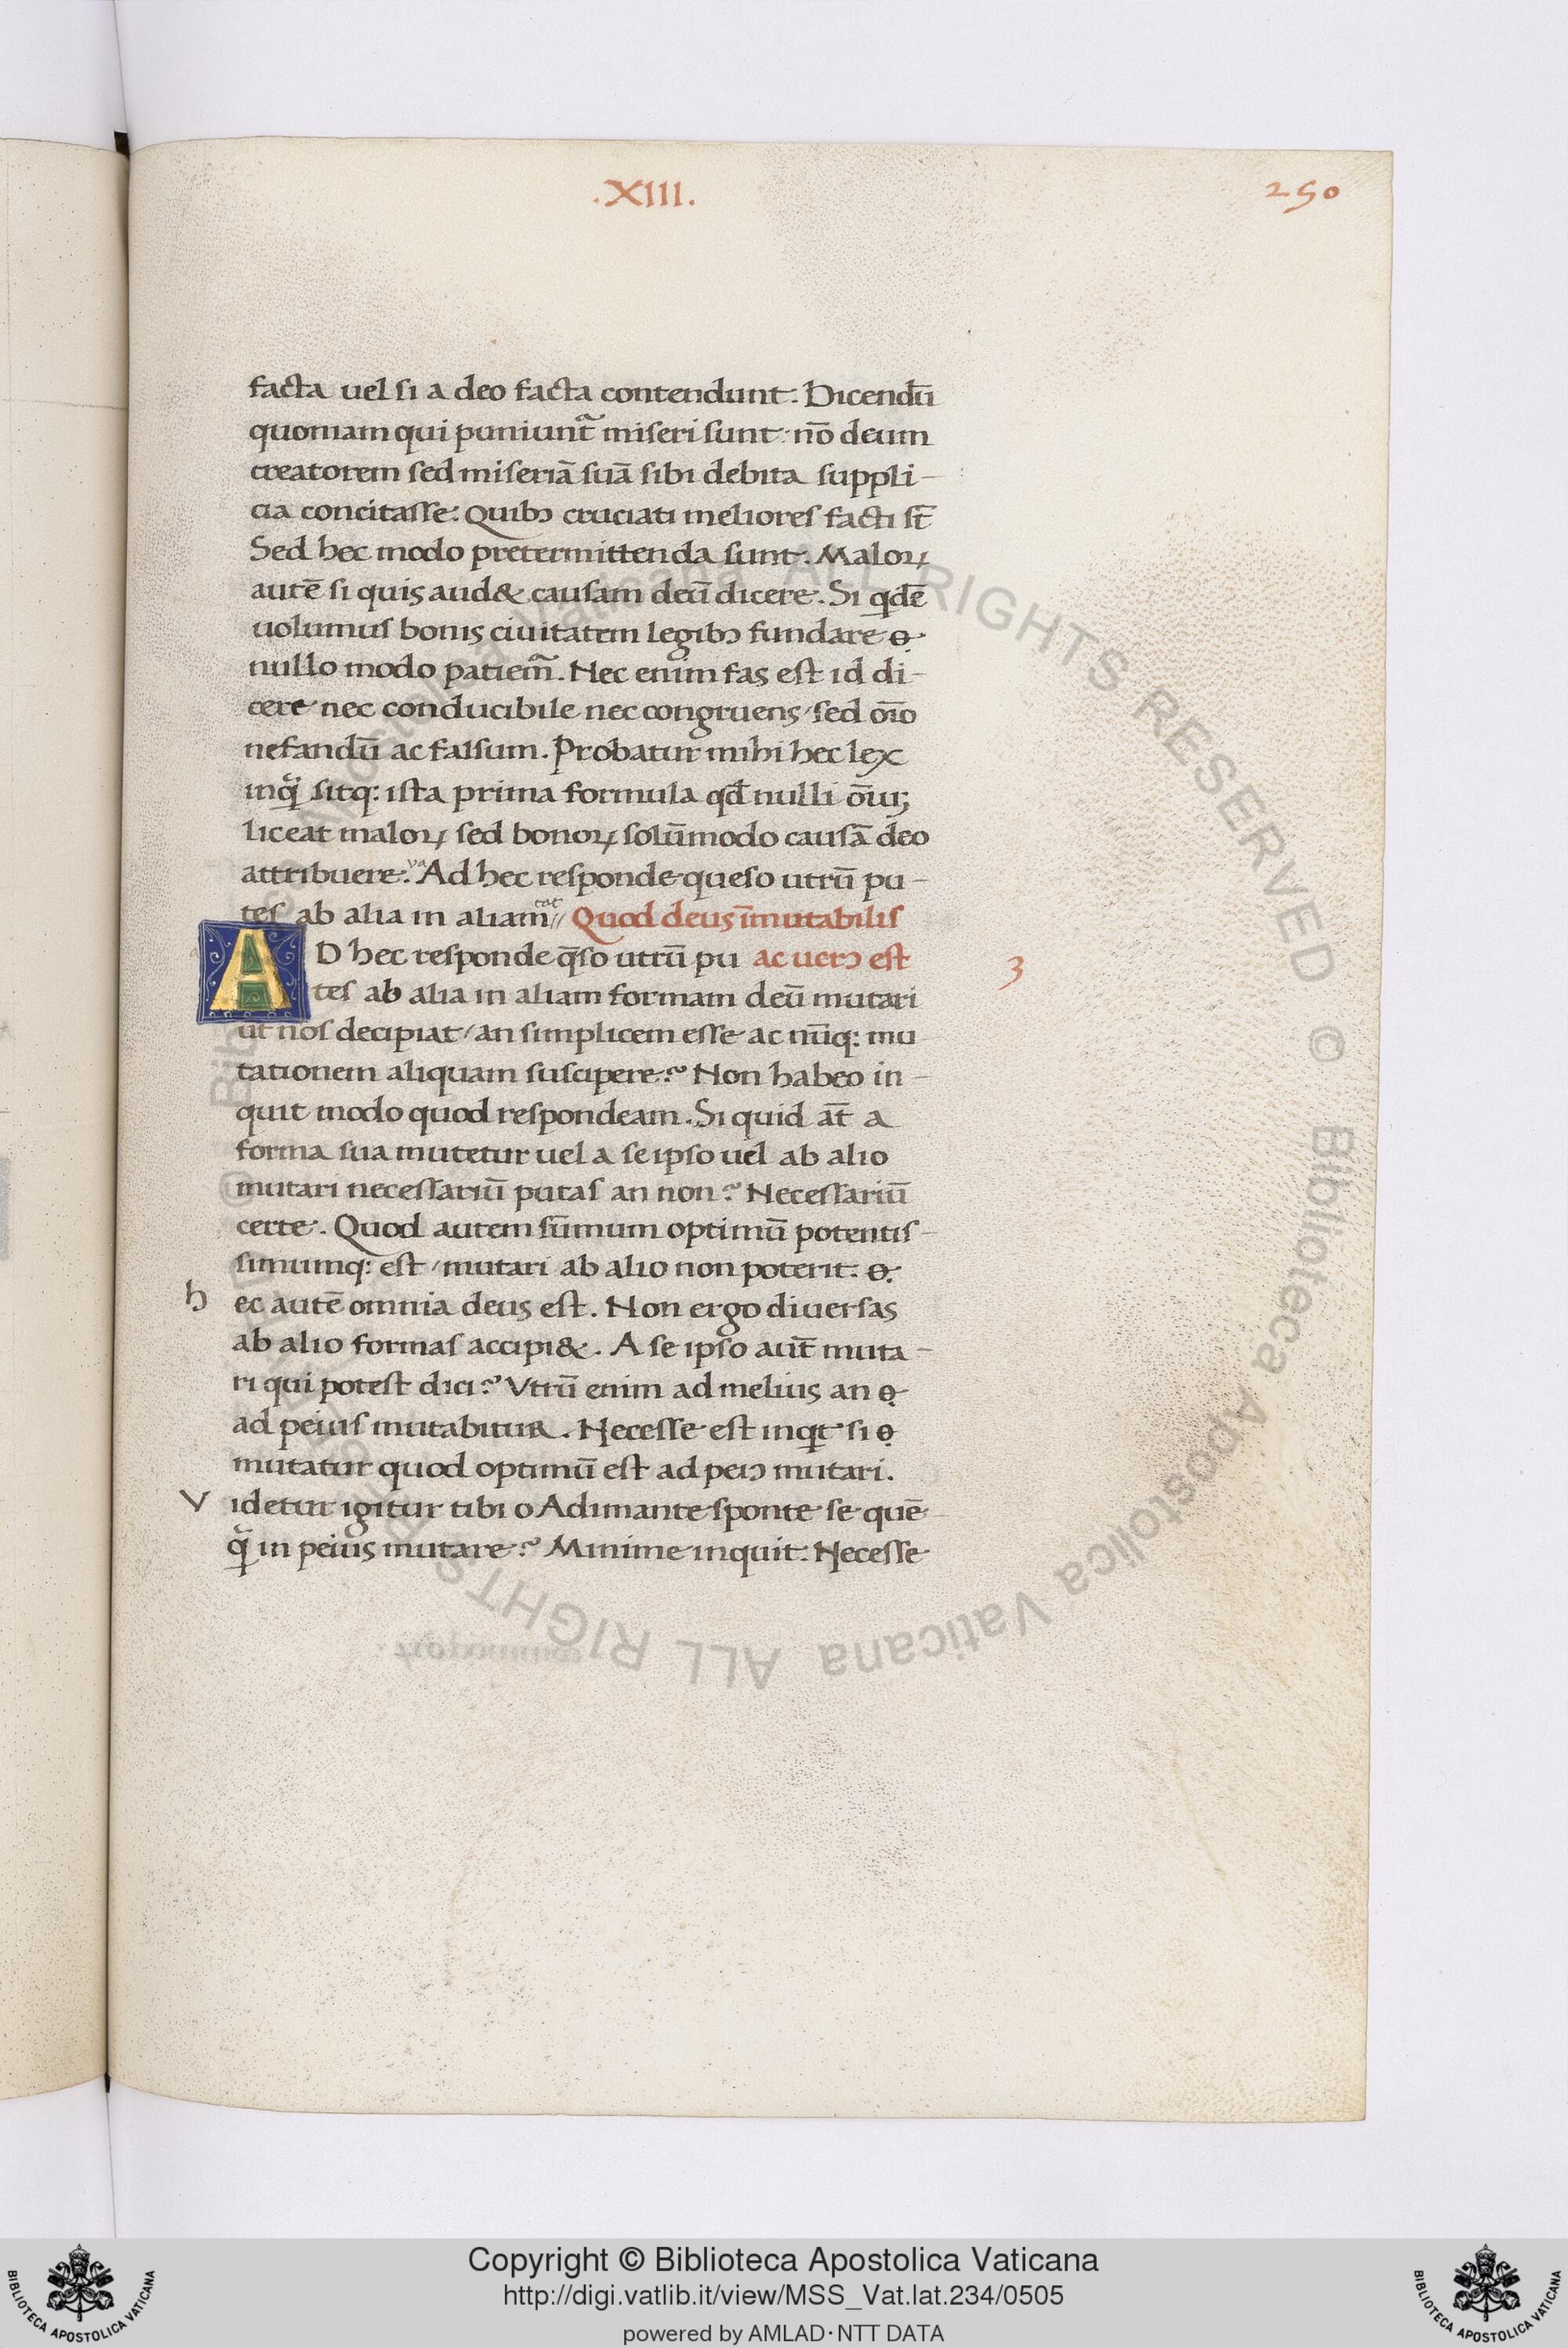 .XIII.
250
facta uel si a deo facta contendunt: Dicendū
quoniam qui puniunt᷑ miseri sunt: nō deum
creatorem sed miseriā suā sibi debita suppli-
cia concitasse: Quibꝰ cruciati meliores facti st̄
Sed hec modo pretermittenda sunt. Maloꝝ
autē si quis aud& causam deū dicere. Si qͥdē
uolumus bonis ciuitatem legibꝰ fundare
nullo modo patiem᷑. Nec enim fas est id di-
cere nec conducibile nec congruens/ sed oīo
nefandū ac falsum. Probatur mihi hec lex
inqͣ sitq: ista prima formula qd̄ nulli oīuꝫ
liceat maloꝝ sed bonoꝝ solūmodo causā deo
attribuere. va Ad hec responde queso utrū pu-
tes ab alia in aliam cat // Quod deus īmutabilis
AD hec responde q̄so utrū pu ac uerꝰ est
3
tes ab alia in aliam formam deū mutari
ut nos decipiat/ an simplicem esse ac nūq: mu
tationem aliquam suscipere? Non habeo in-
quit modo quod respondeam. Si quid at̄ a
forma sua mutetur uel a se ipso uel ab alio
mutari necessariū putas an non? Necessariū
certe. Quod autem sūmum optimū potentis-
simumq: est/ mutari ab alio non poterit.
h ec autē omnia deus est. Non ergo diuersas
ab alio formas accipi&. A se ipso aut̄ muta-
ri qui potest dici? Vtrū enim ad melius an
ad peius mutabitur. Necesse est inqͥt si
mutatur quod optimū est ad peiꝰ mutari.
V idetur igitur tibi o Adimante sponte se quē
qͣ in peius mutare? Minime inquit: Necesse
© Biblioteca Apostolica Vaticana ALL RIGHTS RESERVED © Biblioteca Apostolica Vaticana ALL RIGHTS RESERVED
BIBLIOTECA APOSTOLICA VATICANA
Copyright © Biblioteca Apostolica Vaticana
http://digi.vatlib.it/view/MSS_Vat.lat.234/0505
powered by AMLAD·NTT DATA
BIBLIOTECA APOSTOLICA VATICANA